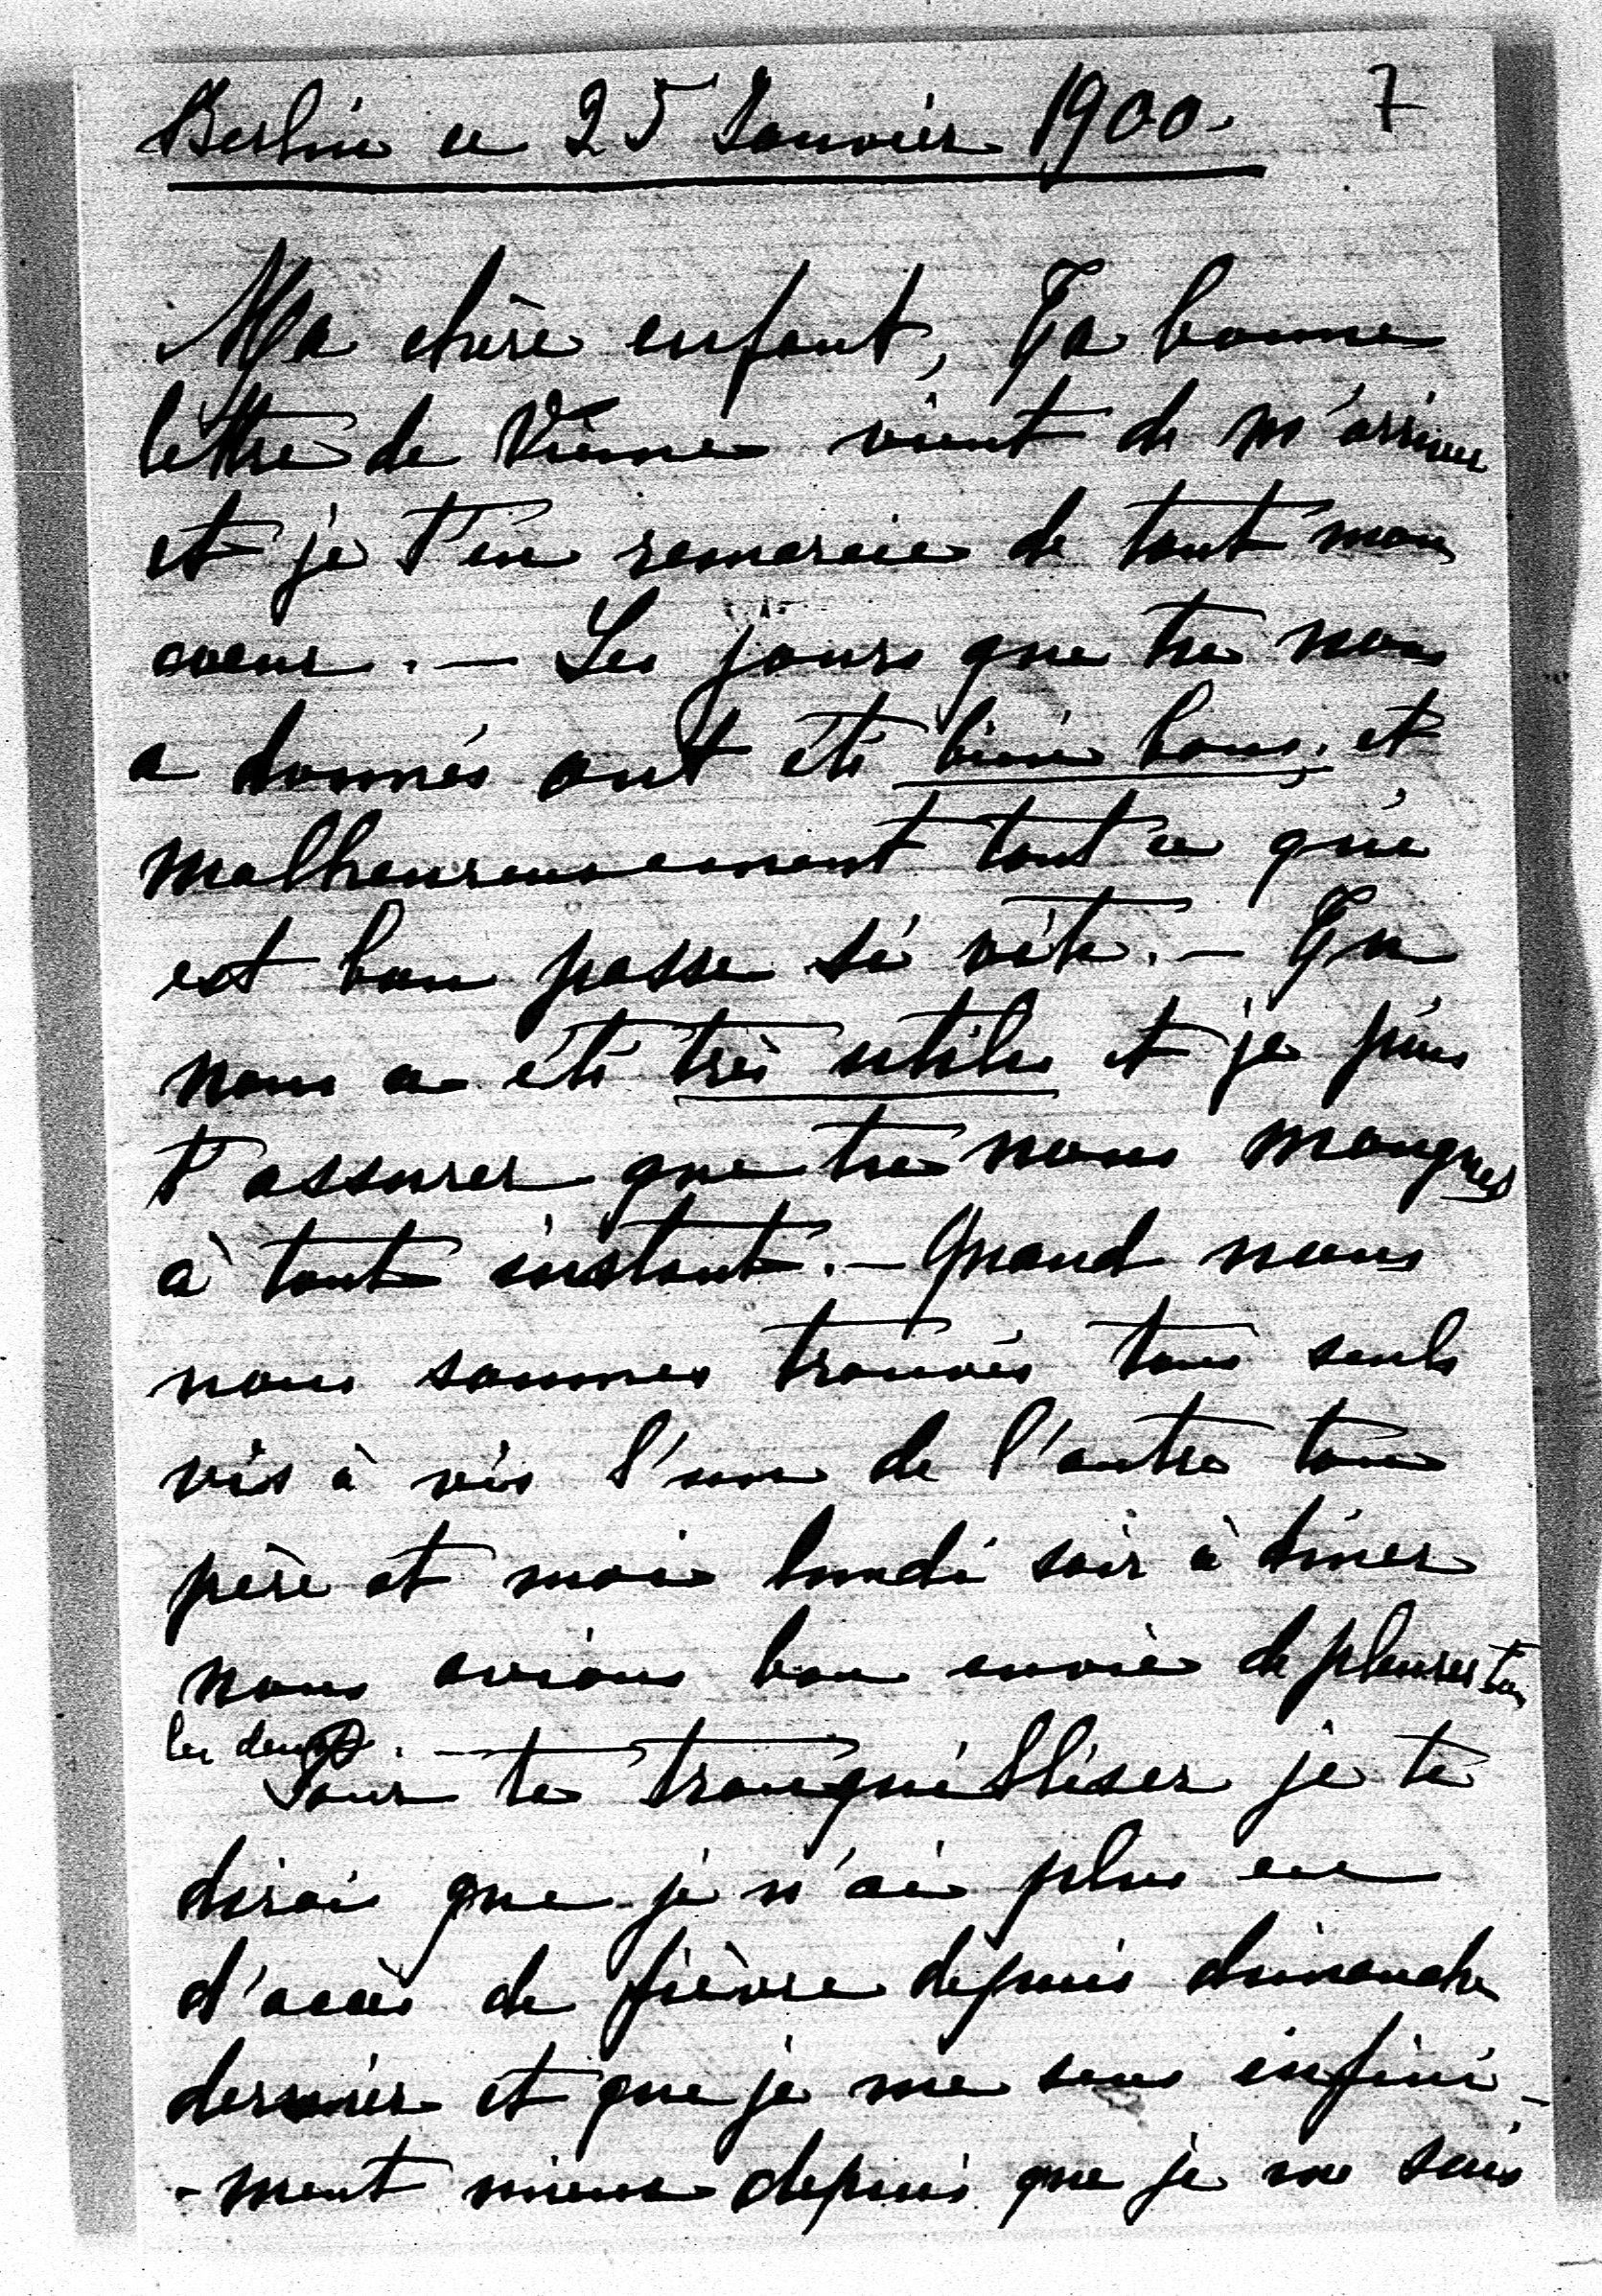 Berlin ce 25 Janvier 1900. 7
Ma chère enfant, Ta bonne
lettre de Vienne vient de m'arriver
et je t'en remercie de tout mon
coeur. — Les jours que tu nous
a donnés ont été bien bons, et
malheureusement tout ce qui
est bon passe si vite. — Tu
nous a été très utile et je puis
t'assurer que tu nous manques
à tout instant. — Quand nous
nous sommes trouvés tous seuls
vis à vis l'un de l'autre ton
père et moi lundi soir à dîner
nous avions bon envie de pleurer tous
les deux. —
Pour te tranquilliser je te
dirai que je n'ai plus eu
d'accès de fièvre depuis dimanche
dernier et que je me sens infini-
-ment mieux depuis que je me sais